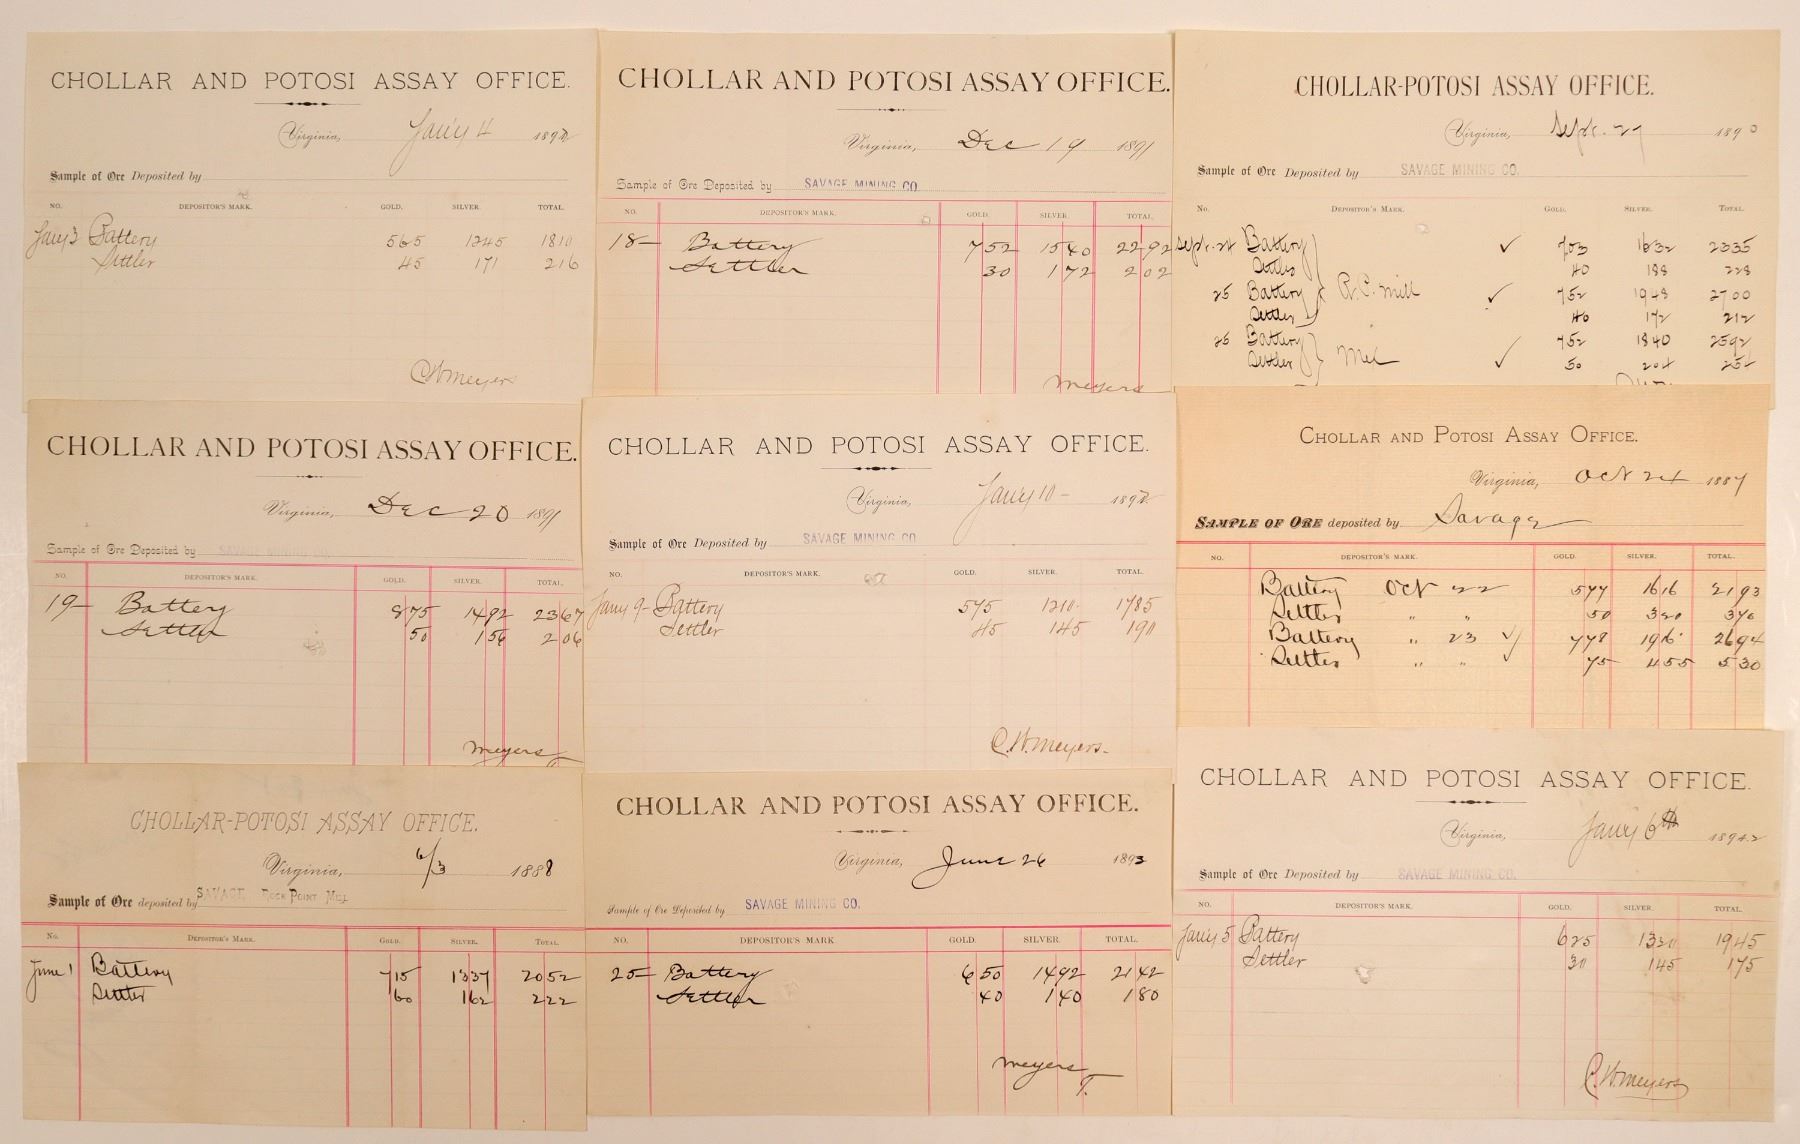 CHOLLAR AND POTOSI ASSAY OFFICE.
Virginia, Jan'y 4 1892
Sample of Ore Deposited by
NO. DEPOSITOR'S MARK. GOLD. SILVER. TOTAL.
Jan'y 3 Battery 565 1245 1810
Settler 45 171 216
C.W. Meyers
CHOLLAR AND POTOSI ASSAY OFFICE.
Virginia, Dec 19 1891
Sample of Ore Deposited by SAVAGE MINING CO.
NO. DEPOSITOR'S MARK. GOLD. SILVER. TOTAL.
18- Battery 7 52 15 40 22 92
Settler 30 172 202
Meyers
CHOLLAR-POTOSI ASSAY OFFICE.
Virginia, Sept. 27 1890
Sample of Ore Deposited by SAVAGE MINING CO.
No. Depositor's Mark. Gold. Silver. Total.
Sept. 24 Battery ✓ 703 1632 2335
Settler 40 188 228
25 Battery R.C. Mill ✓ 752 1948 2700
Settler 40 172 212
25 Battery 752 1840 2592
Settler ✓ 50 204 254
CHOLLAR AND POTOSI ASSAY OFFICE.
Virginia, Dec 20 1891
Sample of Ore Deposited by SAVAGE MINING CO.
NO. DEPOSITOR'S MARK. GOLD. SILVER. TOTAL.
19- Battery 875 1492 2367
Settler 50 156 206
Meyers
CHOLLAR AND POTOSI ASSAY OFFICE.
Virginia, Jan'y 10- 1892
Sample of Ore Deposited by SAVAGE MINING CO.
NO. DEPOSITOR'S MARK. GOLD. SILVER. TOTAL.
Jan'y 9- Battery 575 1210 1785
Settler 45 145 190
C.W. Meyers.
CHOLLAR AND POTOSI ASSAY OFFICE.
Virginia, Oct 24 1887
SAMPLE OF ORE deposited by Savage
NO. DEPOSITOR'S MARK. GOLD. SILVER. TOTAL.
Battery Oct 22 577 1616 2193
Settler " " 50 320 370
Battery " 23 ✓ 778 1916 2694
Settler " " 75 455 530
CHOLLAR-POTOSI ASSAY OFFICE.
Virginia, 6/3 1888
Sample of Ore deposited by SAVAGE ROCK POINT MILL
No. Depositor's Mark. Gold. Silver. Total.
June 1 Battery 715 1337 2052
Settler 60 162 222
CHOLLAR AND POTOSI ASSAY OFFICE.
Virginia, June 26 1893
Sample of Ore Deposited by SAVAGE MINING CO.
NO. DEPOSITOR'S MARK GOLD. SILVER. TOTAL.
25- Battery 650 1492 2142
Settler 40 140 180
Meyers
T.
CHOLLAR AND POTOSI ASSAY OFFICE.
Virginia, Jan'y 6th 1892
Sample of Ore Deposited by SAVAGE MINING CO.
NO. DEPOSITOR'S MARK. GOLD. SILVER. TOTAL.
Jan'y 5 Battery 625 1320 1945
Settler 30 145 175
C.W. Meyers